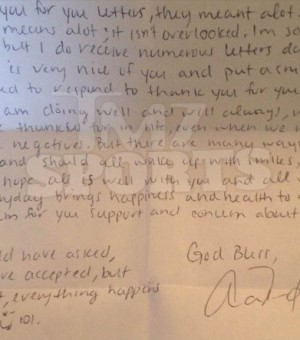 you for you letters, they meant alot.
means alot; it isn't overlooked. I'm so
but I do receive numerous letters da
is very nice of you and put a sm
ed to respond to thank you for you
am doing well and will always,
thankful for life, even when we
negatives. But there are many way
and should all wake up with smiles.
hope all is well with you and all
yday brings happiness and health to
m for you support and concern about
ld have asked,
ve accepted, but
t, everything happens
101.
God Bless,
SPORTS